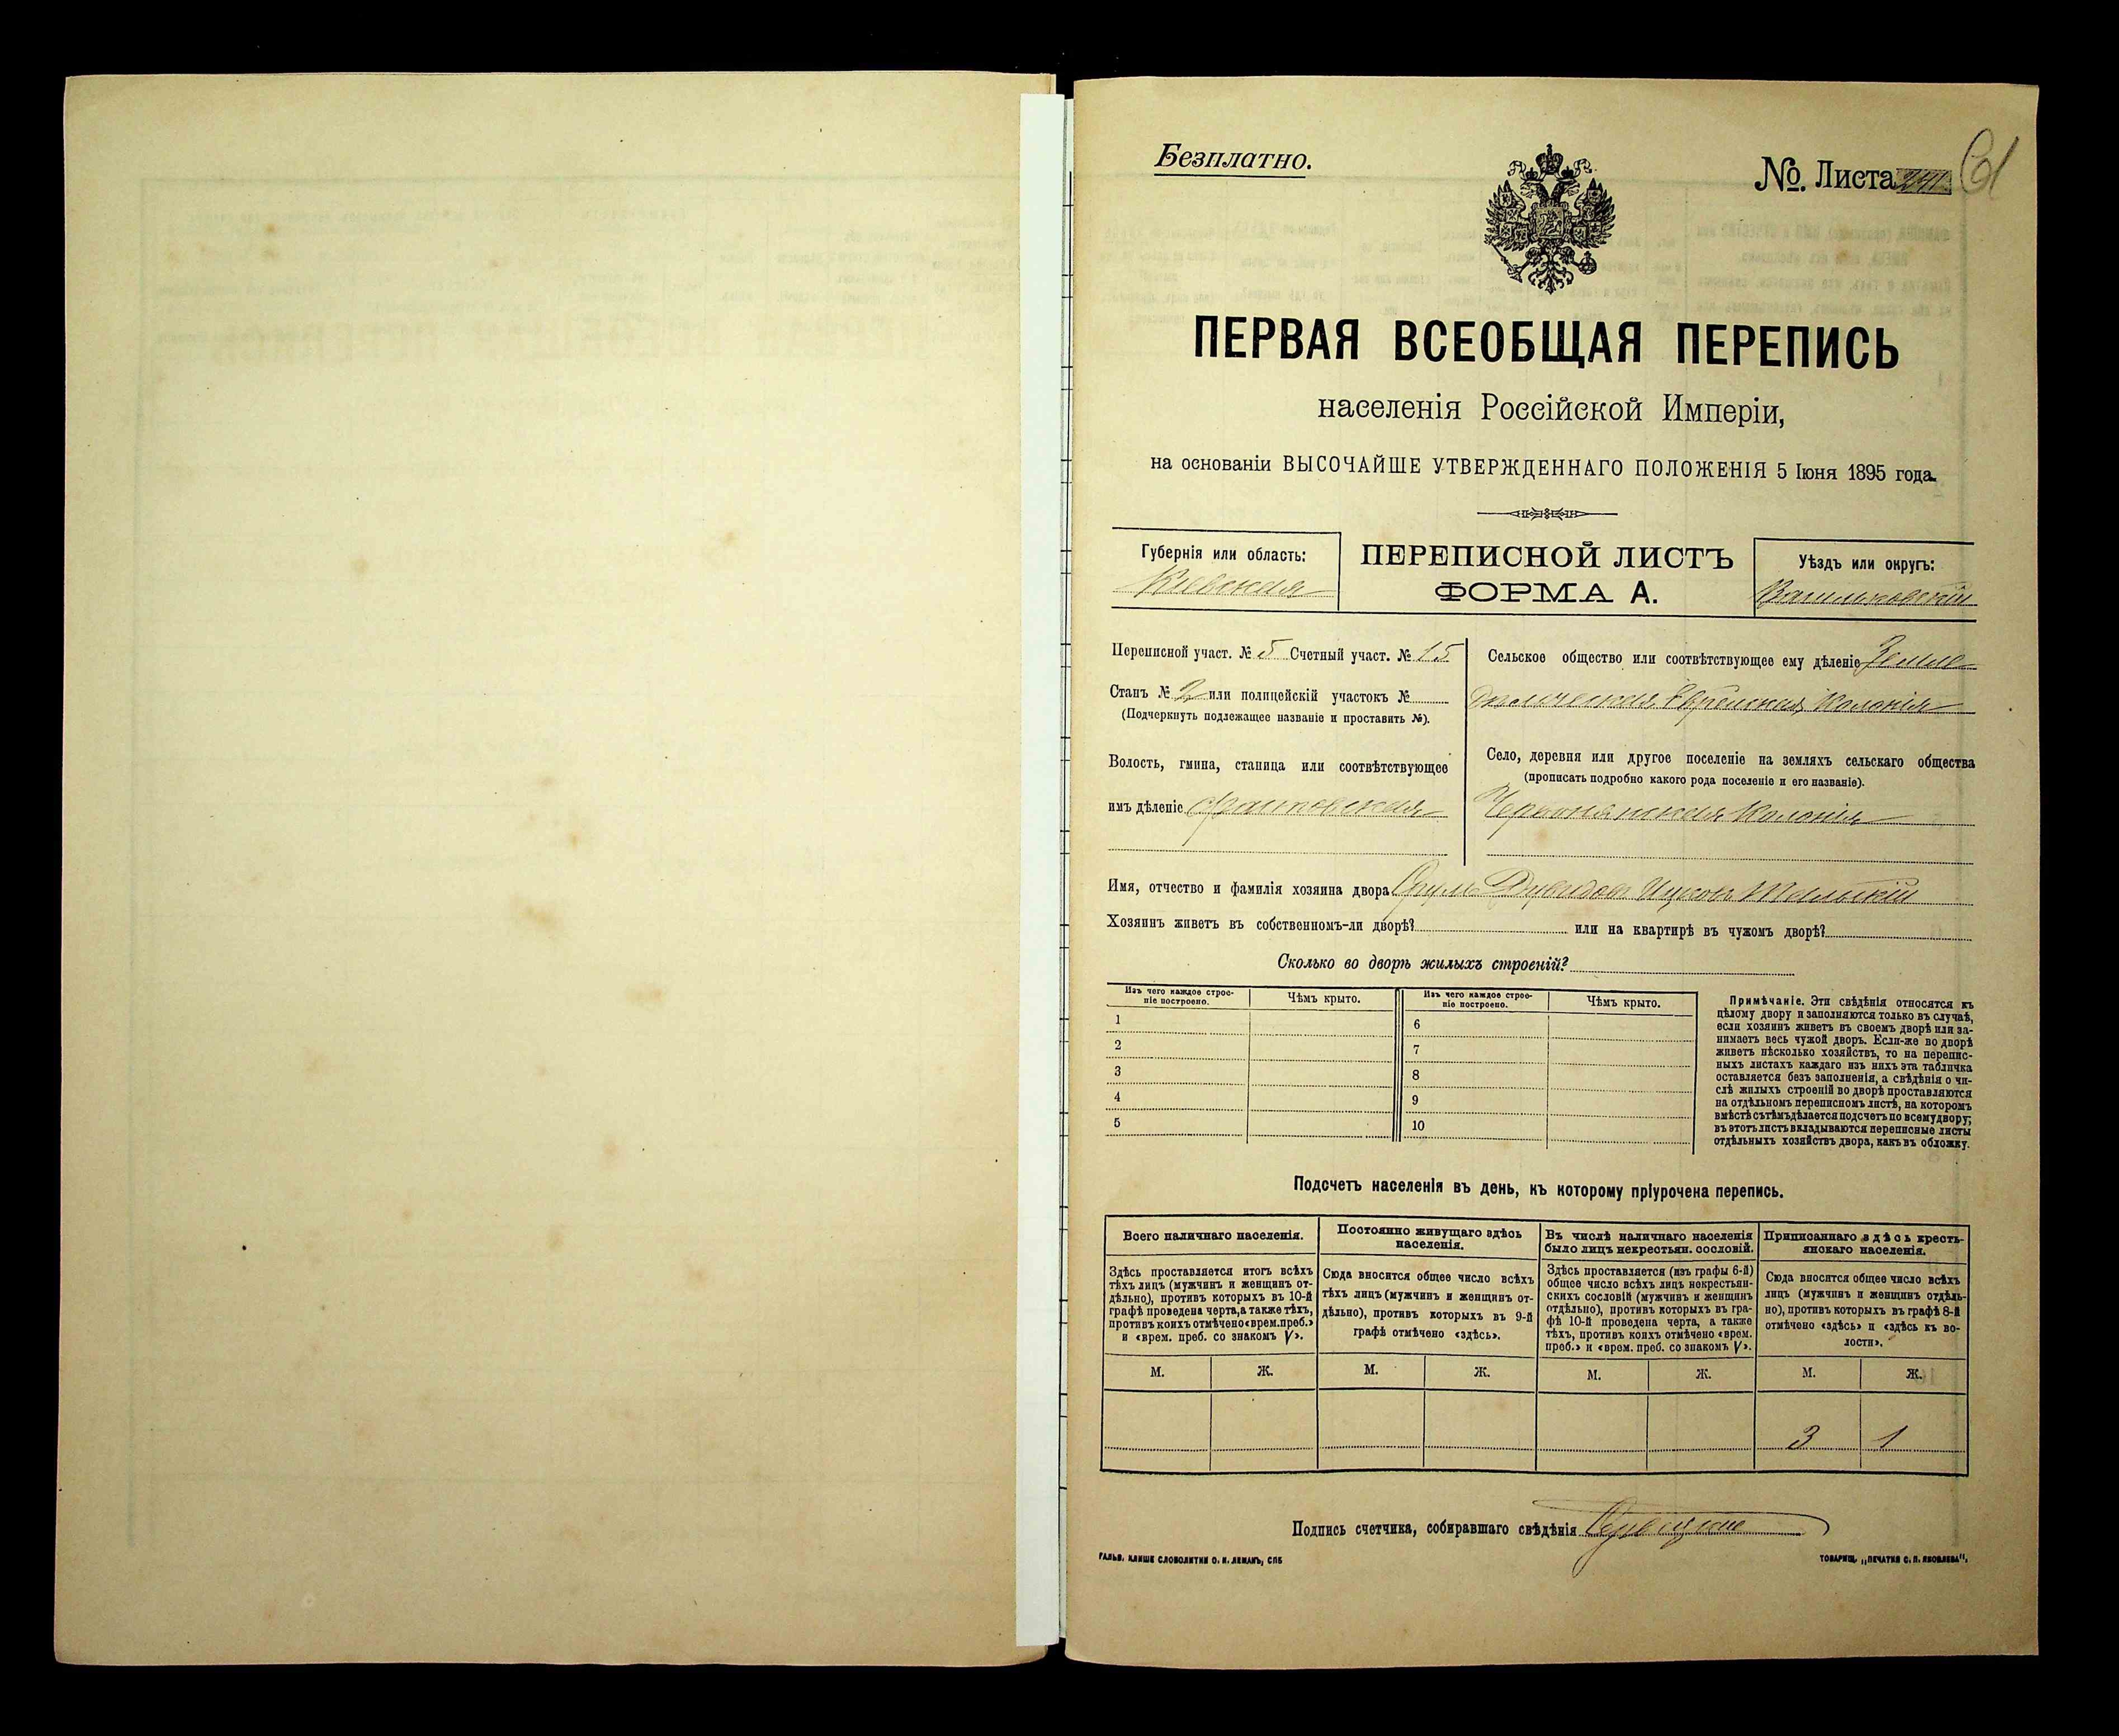 Безплатно.
№. Листа 61
ПЕРВАЯ ВСЕОБЩАЯ ПЕРЕПИСЬ
населенія Россійской Имперіи,
на основаніи ВЫСОЧАЙШЕ УТВЕРЖДЕННАГО ПОЛОЖЕНІЯ 5 Іюня 1895 года.
Губернія или область:
Кіевская
ПЕРЕПИСНОЙ ЛИСТЪ
ФОРМА А.
Уѣздъ или округъ:
Васильковскій
Переписной участ. № 5 Счетный участ. № 15
Станъ № 2 или полицейскій участокъ №
(Подчеркнуть подлежащее названіе и проставить №).
Волость, гмина, станица или соотвѣтствующее
имъ дѣленіе
Сельское общество или соотвѣтствующее ему дѣленіе Земле-
дѣльческая Еврейская Колонія
Село, деревня или другое поселеніе на земляхъ сельскаго общества
(прописать подробно какого рода поселеніе и его названіе).
Червонянская Колонія
Имя, отчество и фамилія хозяина двора Срулъ Давидовъ Ицковъ
Хозяинъ живетъ въ собственномъ-ли дворѣ? или на квартирѣ въ чужомъ дворѣ?
Сколько во дворѣ жилыхъ строеній?
Изъ чего каждое строе-
ніе построено.
Чѣмъ крыто.
Изъ чего каждое строе-
ніе построено.
Чѣмъ крыто.
1 6
2 7
3 8
4 9
5 10
Примѣчаніе. Эти свѣдѣнія относятся къ
цѣлому двору и заполняются только въ случаѣ,
если хозяинъ живетъ въ своемъ дворѣ или за-
нимаетъ весь чужой дворъ. Если-же во дворѣ
живетъ нѣсколько хозяйствъ, то на перепис-
ныхъ листахъ каждаго изъ нихъ эта табличка
оставляется безъ заполненія, а свѣдѣнія о чи-
слѣ жилыхъ строеній во дворѣ проставляются
на отдѣльномъ переписномъ листѣ, на которомъ
вмѣстѣ съ тѣмъ дѣлается подсчетъ по всему двору;
въ этотъ листъ вкладываются переписные листы
отдѣльныхъ хозяйствъ двора, какъ въ обложку.
Подсчетъ населенія въ день, къ которому пріурочена перепись.
Всего наличнаго населенія.
Здѣсь проставляется итогъ всѣхъ
тѣхъ лицъ (мужчинъ и женщинъ от-
дѣльно), противъ которыхъ въ 10-й
графѣ проведена черта, а также тѣхъ,
противъ коихъ отмѣчено «врем. преб.»
и «врем. преб. со знакомъ V».
М. Ж.
Постоянно живущаго здѣсь
населенія.
Сюда вносится общее число всѣхъ
тѣхъ лицъ (мужчинъ и женщинъ от-
дѣльно), противъ которыхъ въ 9-й
графѣ отмѣчено «здѣсь».
М. Ж.
Въ числѣ наличнаго населенія
было лицъ некрестьян. сословій.
Здѣсь проставляется (изъ графы 6-й)
общее число всѣхъ лицъ некрестьян-
скихъ сословій (мужчинъ и женщинъ
отдѣльно), противъ которыхъ въ гра-
фѣ 10-й проведена черта, а также
тѣхъ, противъ коихъ отмѣчено «врем.
преб.» и «врем. преб. со знакомъ V».
М. Ж.
Приписаннаго здѣсь кресть-
янскаго населенія.
Сюда вносится общее число всѣхъ
лицъ (мужчинъ и женщинъ отдѣль-
но), противъ которыхъ въ графѣ 8-й
отмѣчено «здѣсь» и «здѣсь къ во-
лости».
М. Ж.
3 1
Подпись счетчика, собиравшаго свѣдѣнія
ГАЛЬВ. КЛИШЕ СЛОВОЛИТНИ О. И. ЛЕМАНЪ, СПБ
ТОВАРИЩ. „ПЕЧАТНЯ С. П. ЯКОВЛЕВА".